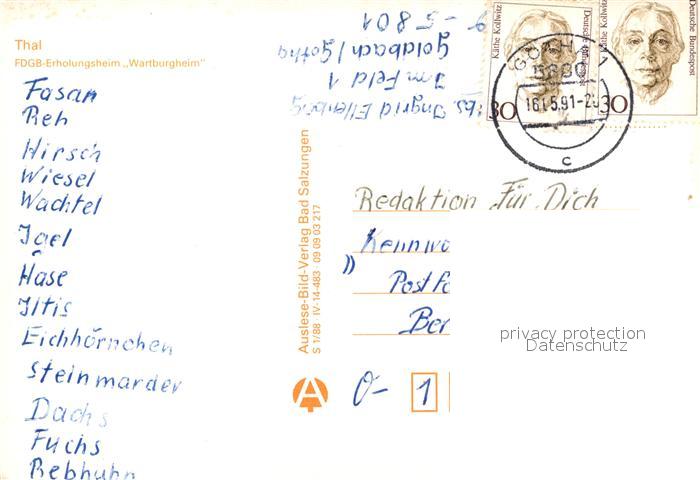 Thal
FDGB-Erholungsheim „Wartburgheim"
Fasan
Reh
Hirsch
Wiesel
Wachtel
Igel
Hase
Iltis
Eichhörnchen
Steinmarder
Dachs
Fuchs
Rebhuhn
Abs. Ingrid
Im Feld 1
Goldbach/Gotha
5801
Auslese-Bild-Verlag Bad Salzungen
S 1/88 · IV-14-483 · 09 09 03 217
Käthe Kollwitz
Deutsche Bundespost
30
Käthe Kollwitz
Deutsche Bundespost
30
GOTHA 1
5800
16.5.91-20
c
Redaktion Für Dich
Kennwo
Postfa
Ber
O- 1
privacy protection
Datenschutz